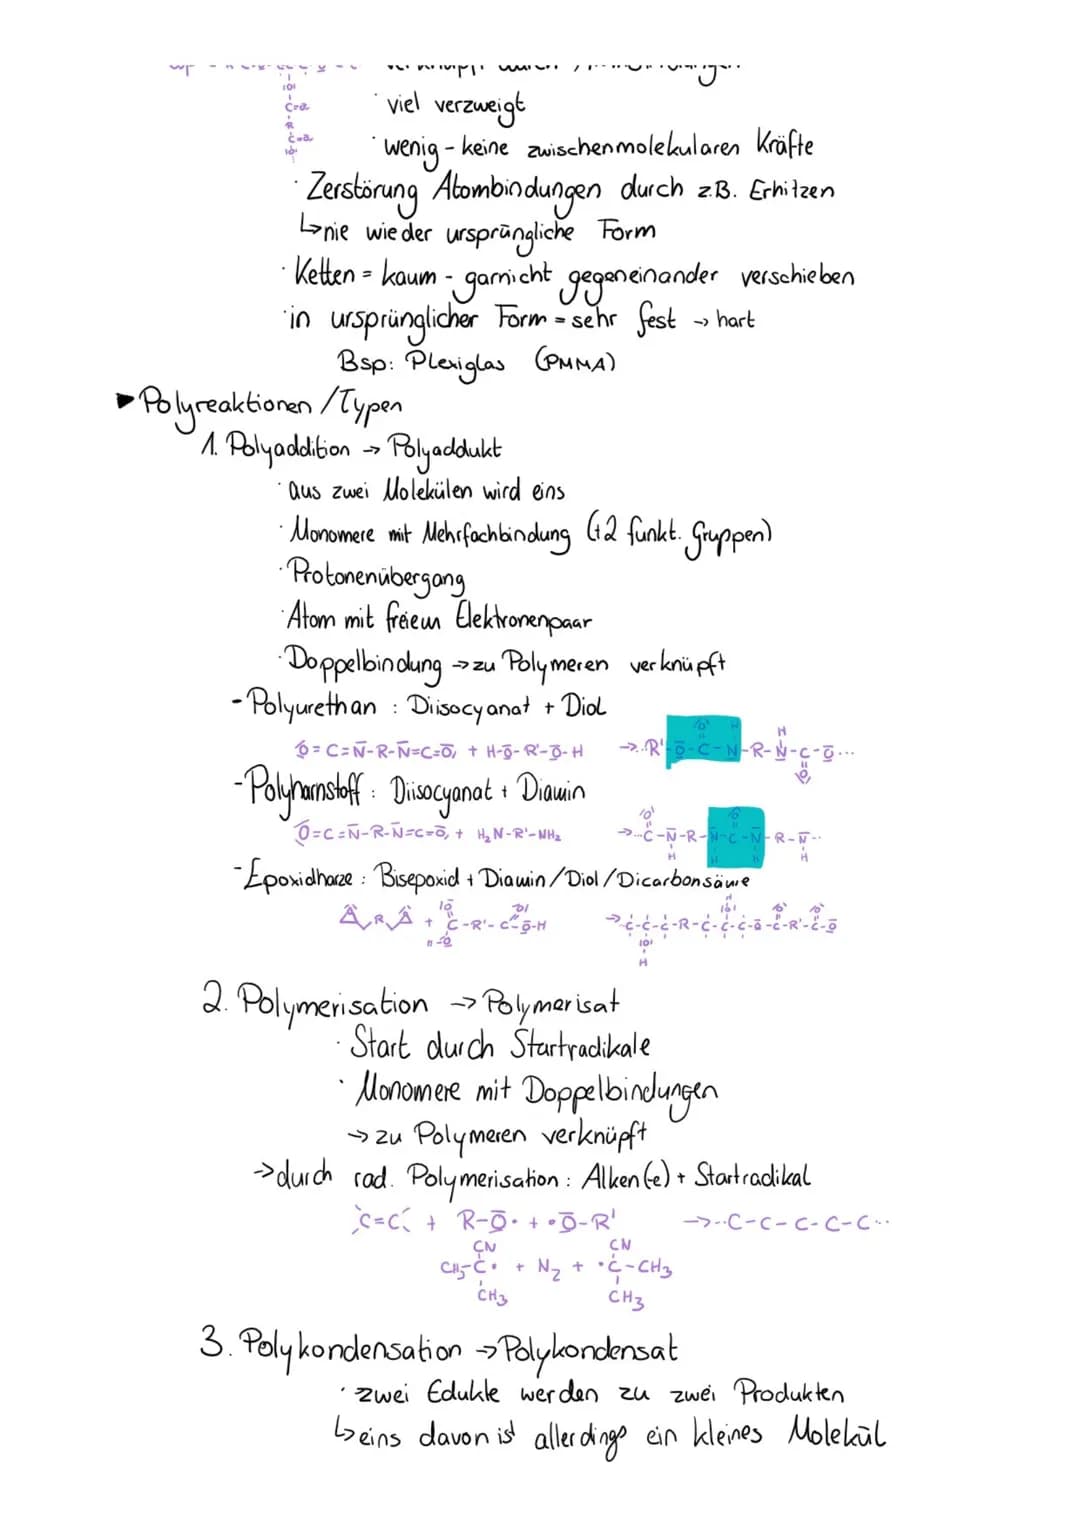 · viel verzweigt
· wenig - keine zwischenmolekularen Kräfte
· Zerstörung Atombindungen durch z.B. Erhitzen
↳ nie wieder ursprüngliche Form
· Ketten = kaum - garnicht gegeneinander verschieben
· in ursprünglicher Form = sehr fest → hart
Bsp: Plexiglas (PMMA)
▶ Polyreaktionen / Typen
1. Polyaddition → Polyaddukt
· aus zwei Molekülen wird eins
· Monomere mit Mehrfachbindung (+2 funkt. Gruppen)
· Protonenübergang
· Atom mit freiem Elektronenpaar
· Doppelbindung → zu Polymeren verknüpft
- Polyurethan : Diisocyanat + Diol
O=C=N-R-N=C=O + H-O-R'-O-H → ..R'-O-C-N-R-N-C-O...
- Polyharnstoff : Diisocyanat + Diamin
O=C=N-R-N=C=O + H₂N-R'-NH₂ → ...C-N-R-N-C-N-R-N-..
- Epoxidharze : Bisepoxid + Diamin / Diol / Dicarbonsäure
2. Polymerisation → Polymerisat
· Start durch Startradikale
· Monomere mit Doppelbindungen
→ zu Polymeren verknüpft
→ durch rad. Polymerisation : Alken(e) + Startradikal
C=C + R-O• + •O-R' → ..C-C-C-C-C..
CN CN
CH₃-C• + N₂ + •C-CH₃
CH₃ CH₃
3. Polykondensation → Polykondensat
· zwei Edukte werden zu zwei Produkten
↳ eins davon ist allerdings ein kleines Molekül